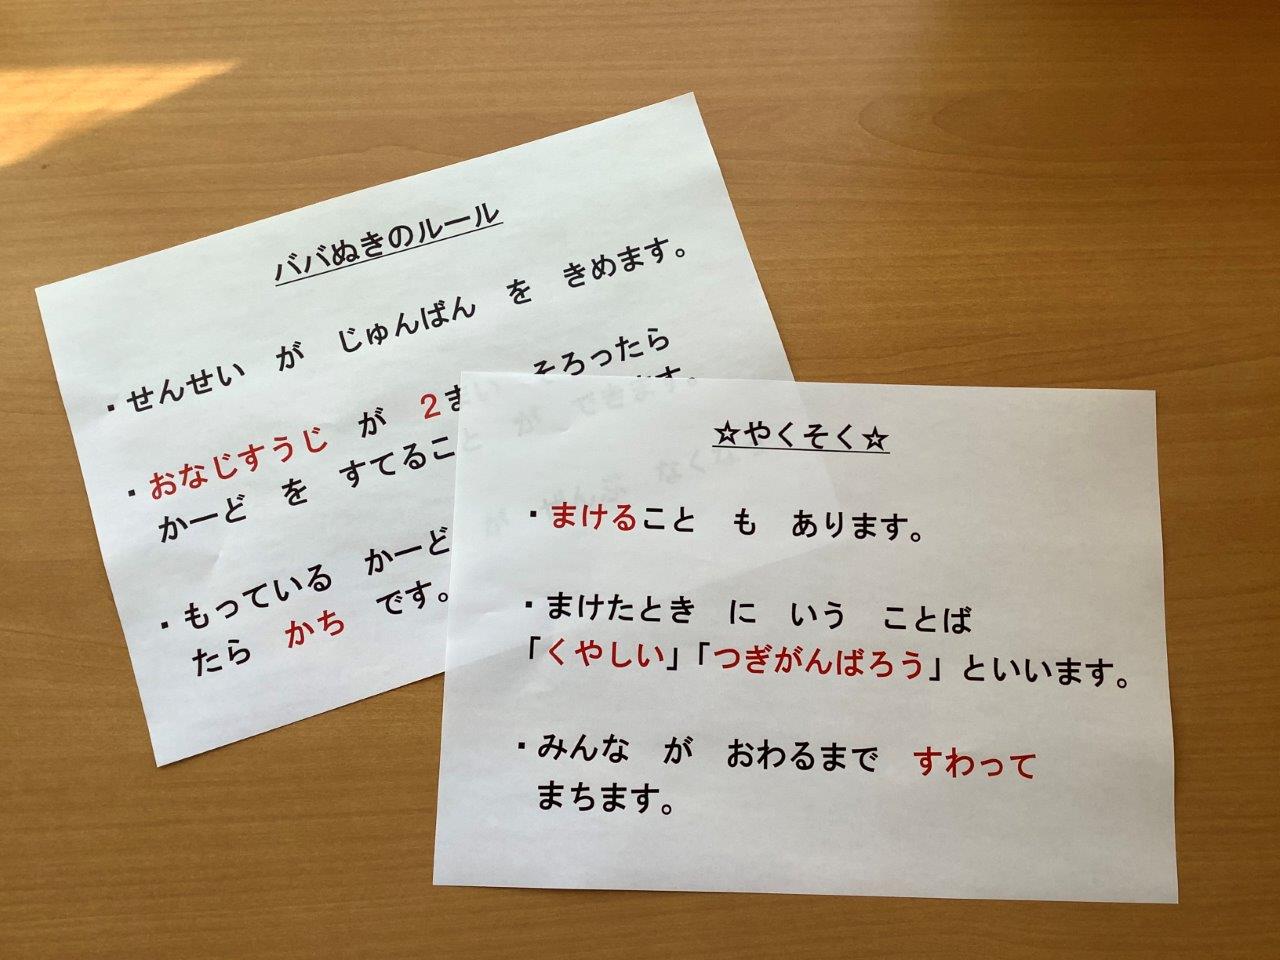 ババぬきのルール
・せんせい　が　じゅんばん　を　きめます。
・おなじすうじ　が　２まい　そろったら
かーど　を　すてること　が　できます。
・もっている　かーど　が　ぜんぶ　なくなっ
たら　かち　です。
☆やくそく☆
・まけること　も　あります。
・まけたとき　に　いう　ことば
「くやしい」「つぎがんばろう」といいます。
・みんな　が　おわるまで　すわって
まちます。